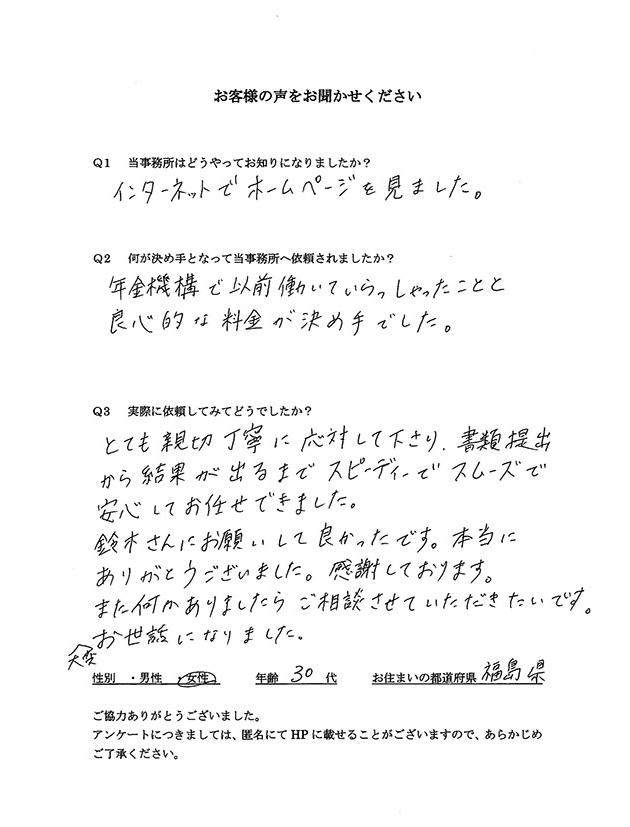 お客様の声をお聞かせください
Q1 当事務所はどうやってお知りになりましたか？
インターネットでホームページを見ました。
Q2 何が決め手となって当事務所へ依頼されましたか？
年金機構で以前働いていらっしゃったことと
良心的な料金が決め手でした。
Q3 実際に依頼してみてどうでしたか？
とても親切丁寧に応対して下さり、書類提出
から結果が出るまでスピーディーでスムーズで
安心してお任せできました。
鈴木さんにお願いして良かったです。本当に
ありがとうございました。感謝しております。
また何かありましたらご相談させていただきたいです。
大変お世話になりました。
性別 ・男性 ・女性 年齢 30 代 お住まいの都道府県 福島県
ご協力ありがとうございました。
アンケートにつきましては、匿名にてHPに載せることがございますので、あらかじめ
ご了承ください。